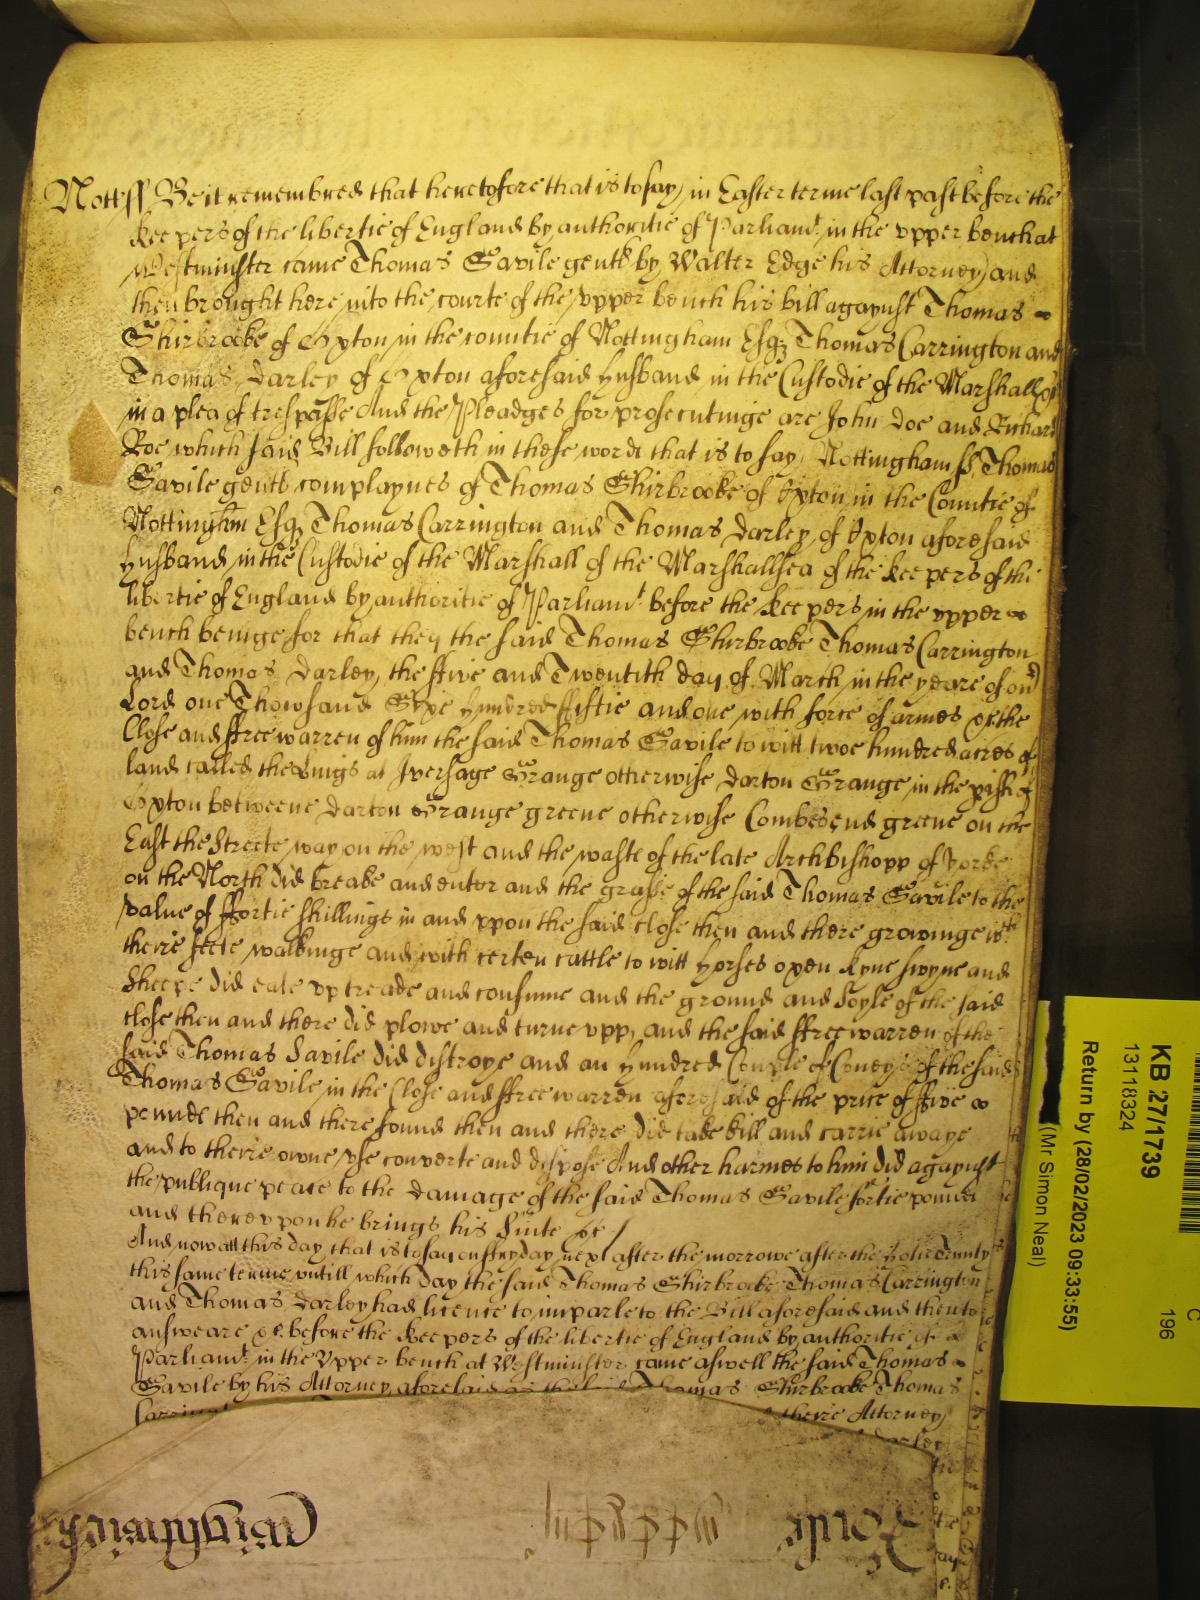 Nottss Be it remembred that heretofore that is to say, in Easter terme last past before the
keepers of the libertie of England by authoritie of Parliamt. in the vpper bench at
Westminster came Thomas Savile gentl by Walter Edge his Attorney and
then brought here into the courte of the vpper bench his bill agaynst Thomas
Shirbrooke of Oxton in the countie of Nottingham Esqz Thomas Carrington and
Thomas Darley of Oxton aforesaid husband in the Custodie of the Marshall &c
in a plea of trespasse And the Pleadges for prosecutinge are John Doe and Richard
Roe which said Bill followeth in these words that is to say, Nottingham ss Thomas
Savile gentl complaynes of Thomas Shirbrooke of Oxton in the Countie of
Nottinghm Esqz Thomas Carrington and Thomas Darley of Oxton aforesaid
husband in the Custodie of the Marshall of the Marshallsea of the keepers of the
libertie of England by authoritie of Parliamt. before the keepers in the vpper
bench beinge for that they the said Thomas Shirbrooke Thomas Carrington
and Thomas Darley, the ffive and Twentith day of March in the yeare of our
Lord one Thowsand Sixe hundred ffiftie and one with force of armes &c the
Close and ffree warren of him the said Thomas Savile to witt twoe hundred acres of
land called the at Iversage Grange otherwise Darton Grange in the pish of
Oxton betweene Darton Grange greene otherwise Combes end greene on the
East the Streete way on the west and the waste of the late Archbishopp of Yorke
on the North did breake and enter and the grasse of the said Thomas Savile to the
value of ffortie shillings in and vpon the said close then and there growinge wth
theire feete walkinge and with certen cattle to witt horses oxen kyne swyne and
sheepe did eate vp treade and consume and the ground and soyle of the said
close then and there did plowe and turne vpp, and the said ffree warren of the
said Thomas Savile did distroye and an hundred Couple of Coneys of the said
Thomas Savile in the Close and ffree warren aforesaid of the price of ffive
pounds then and there found then and there did take kill and carrie awaye
and to theire owne vse converte and dispose And other harmes to him did agaynst
the publique peace to the damage of the said Thomas Savile fortie pounds
and therevpon he brings his suite &c /
And now att this day, that is to say on ffryday next after the morrowe after the holie Trinity
this same terme vntill which day the said Thomas Shirbrooke Thomas Carrington
and Thomas Darley had licence to imparle to the Bill aforesaid and then to
answeare &c. before the keepers of the libertie of England by authoritie of
Parliamt. in the Vpper bench at Westminster came aswell the said Thomas
Savile by his Attorney aforesaid as the said Thomas Shirbrooke Thomas
theire Attorney
KB 27/1739
13118324
Return by (28/02/2023 09:33:55)
(Mr Simon Neal)
C
196
Wightwick